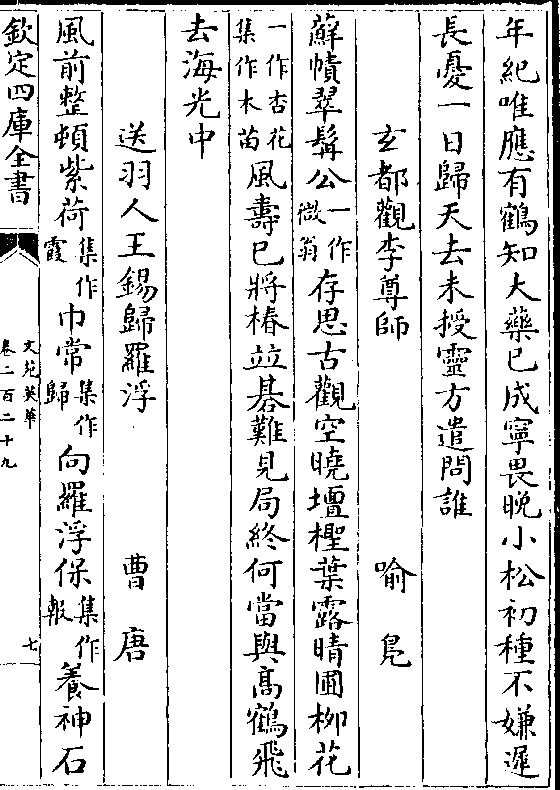 年紀唯應有鶴知大藥已成寧畏晚小松初種不嫌遲
長憂一日歸天去未授靈方遣問誰
玄都觀李尊師　喻鳧
蘚幘翠髯公一作微翁存思古觀空曉壇檉葉露晴圃柳花
一作杏花集作木苗風壽已將椿竝碁難見局終何當與高鶴飛
去海光中
送羽人王錫歸羅浮　曹唐
風前整頓紫荷集作霞巾常集作歸向羅浮保集作報養神石
欽定四庫全書
文苑英華
卷二百二十九
七